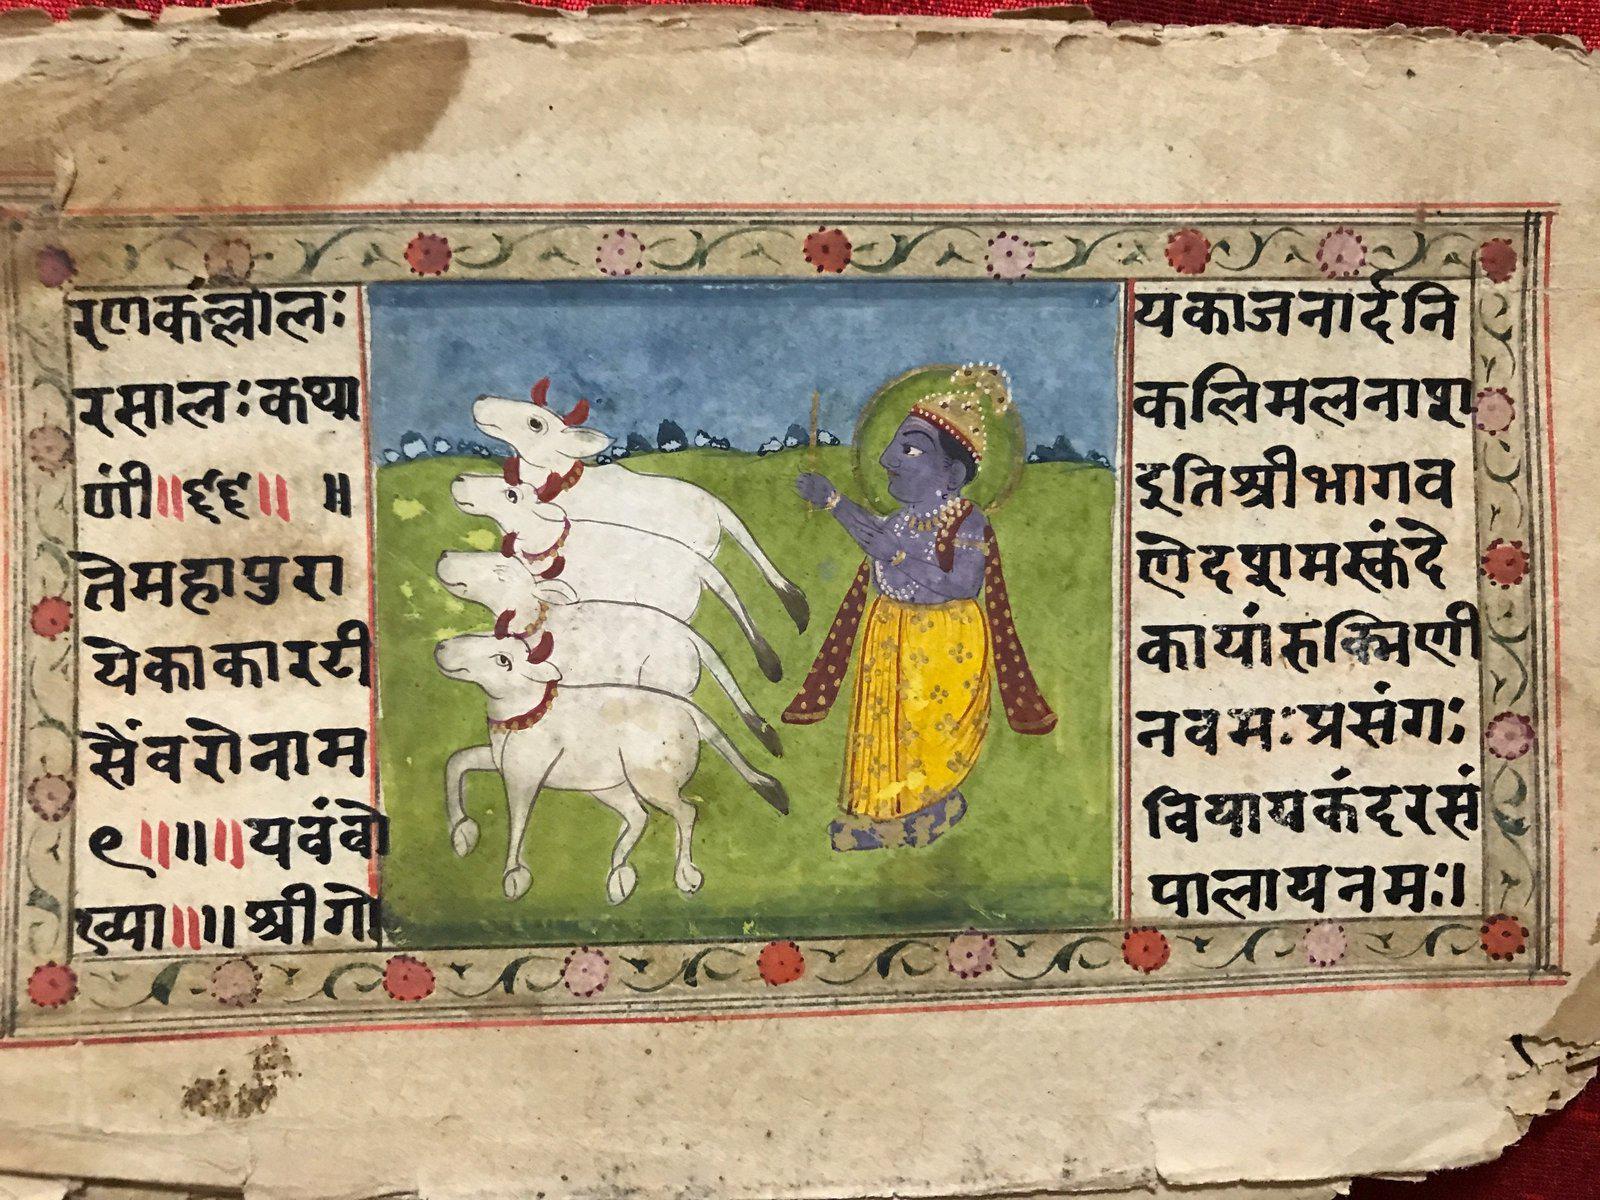 रणकल्लोलः यकाजनार्दनि
रसालःकथा कलिमलनाश
णी॥६६॥ ॥ इतिश्रीभागव
तेमहापुरा णेदशमस्कंदे
येकाकारटी कायांरुक्मिणी
सैंवरोनाम नवमःप्रसंगः
९॥॥॥यवंवो वियायकंदरसं
ख्या॥॥श्रीगो पालायनमः॥